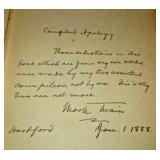 Compiler's Apology
Those selections in this
book which are from my own works
were made by my two assistant
compilers, not by me. This is why
there are not more.
Mark Twain
Hartford Jan. 1 1888.